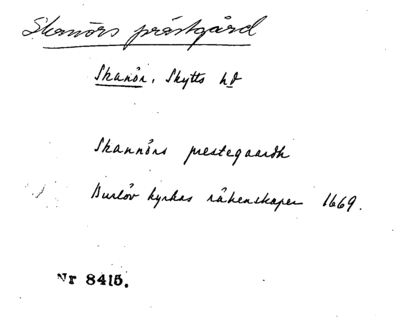 Skanörs prästgård
Skanör, Skytts hd
Skannörs prestegaardh
Burlöv kyrkas räkenskaper 1669.
Nr 8415.